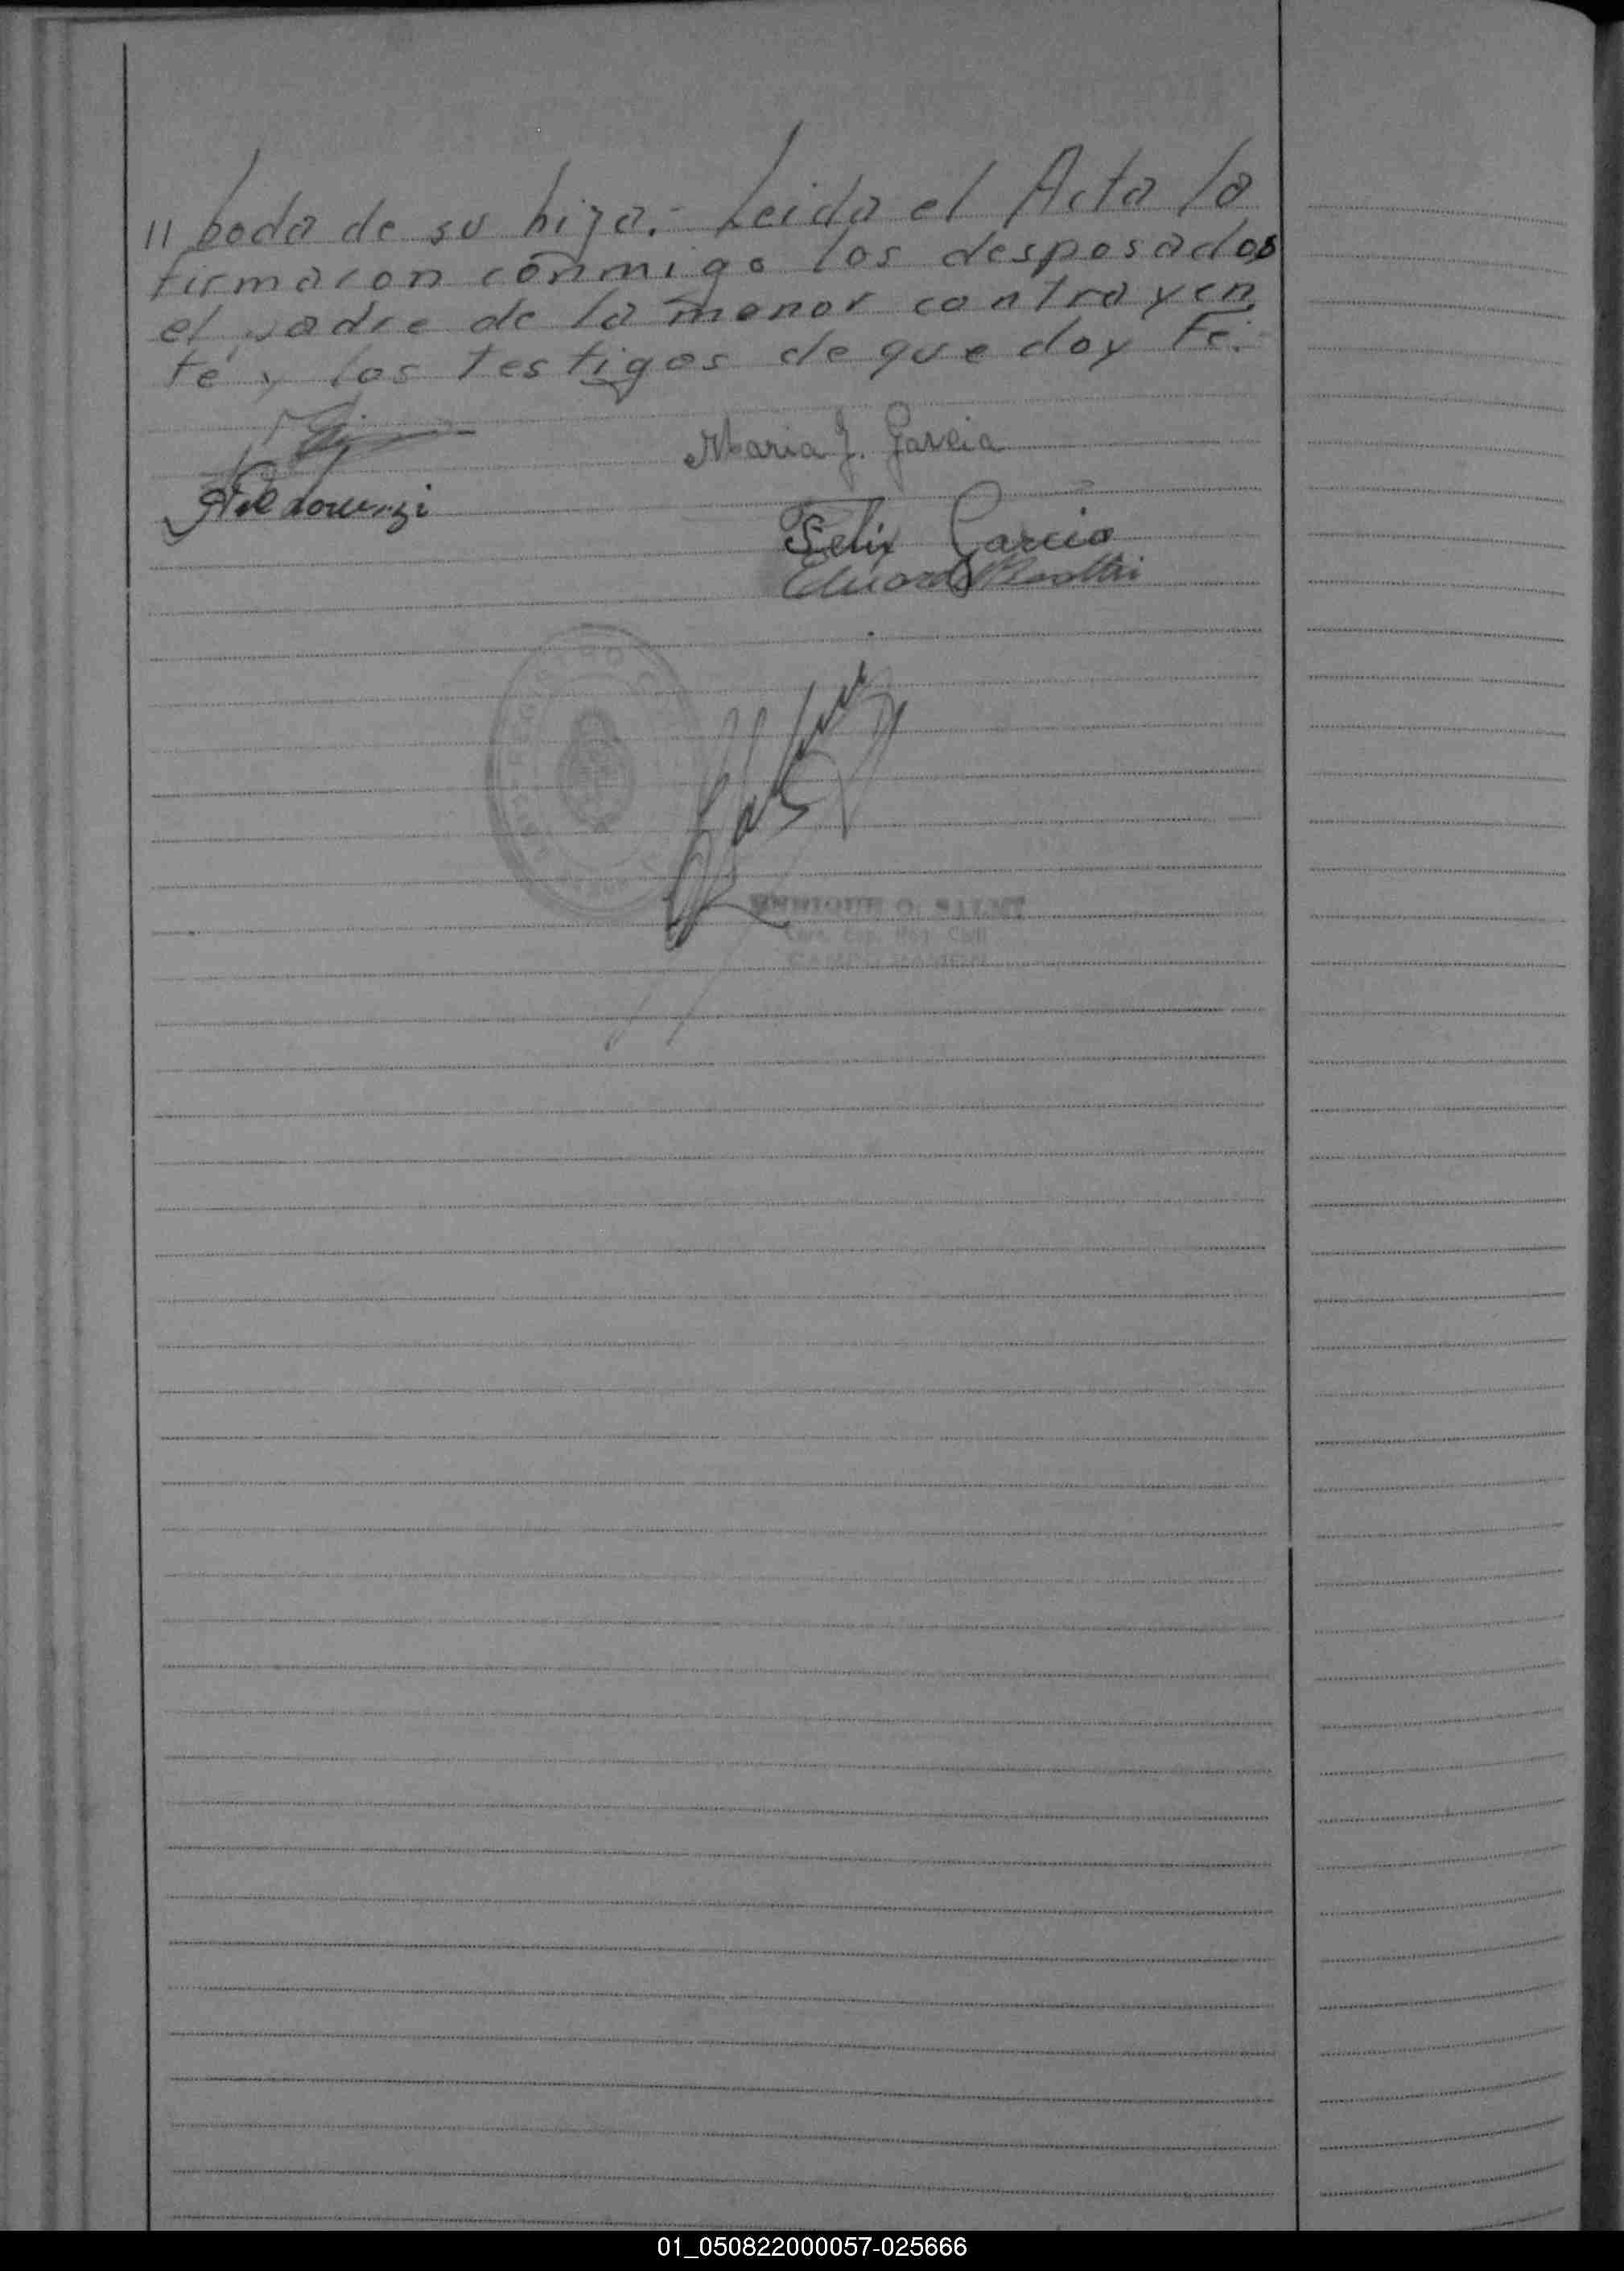 " boda de su hija.- Leida el Acta la
firmaron conmigo los desposados
el padre de la menor contrayen
te y los testigos de que doy Fe.
Maria J. Garcia
Felix Garcia
Eduardo
ENRIQUE O.
CAMPO RAMON
01_050822000057-025666